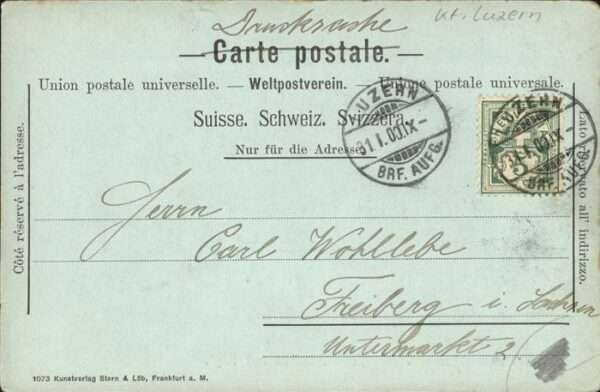 Drucksache
Kt. Luzern
Carte postale.
Union postale universelle. — Weltpostverein. — Unione postale universale.
Suisse. Schweiz. Svizzera.
Nur für die Adresse.
LUZERN
31.I.00.IX-
BRF. AUFG.
LUZERN
31.I.00.IX-
BRF. AUFG.
Côté réservé à l'adresse.
Lato riservato all' indirizzo.
Herrn
Carl Wohllebe
Freiberg i. Sachsen
Untermarkt 2
1073 Kunstverlag Stern & Löb, Frankfurt a. M.